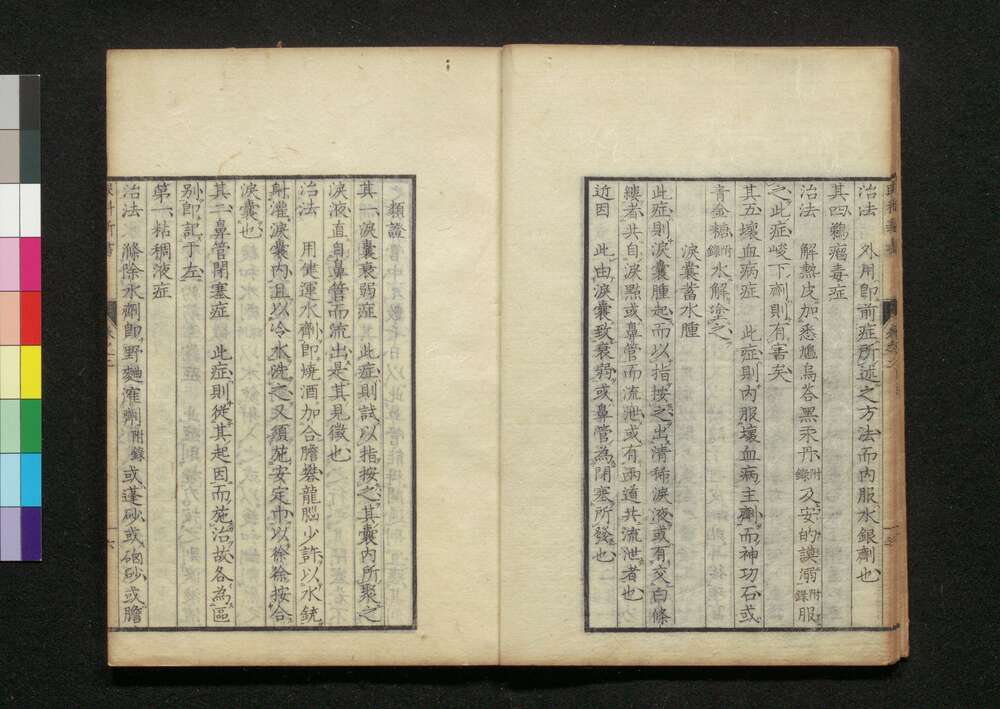 治法　外用即前症所述之方法而内服水銀劑也
其四黴瘤毒症
治法　解熱皮加悉爐烏荅黑汞丹附錄及安的謨溺附錄服
之此症峻下劑則有害矣
其五壞血病症　此症則内服壞血病主劑而神功石或
青金糖附錄水解塗之
淚囊蓄水腫
此症則淚囊腫起而以指按之出清稀淚液或有交白條
縷者共自淚點或鼻管而流泄或有兩道共流泄者也
近因　此由淚囊致衰弱或鼻管為閉塞所發也
類證
其一淚囊衰弱症　此症則試以指按之其囊内所聚之
淚液直自鼻管而流出是其見徵也
治法　用健運水劑即燒酒加合膽礬龍腦少許以水銃
射灌淚囊内且以冷水洗之又須施安定巾以徐徐按合
淚囊也
其二鼻管閉塞症　此症則從其起因而施治故各為區
別即記于左
第一粘稠液症
治法　滌除水劑即野麯窿劑附錄或蓬砂或硇砂或膽